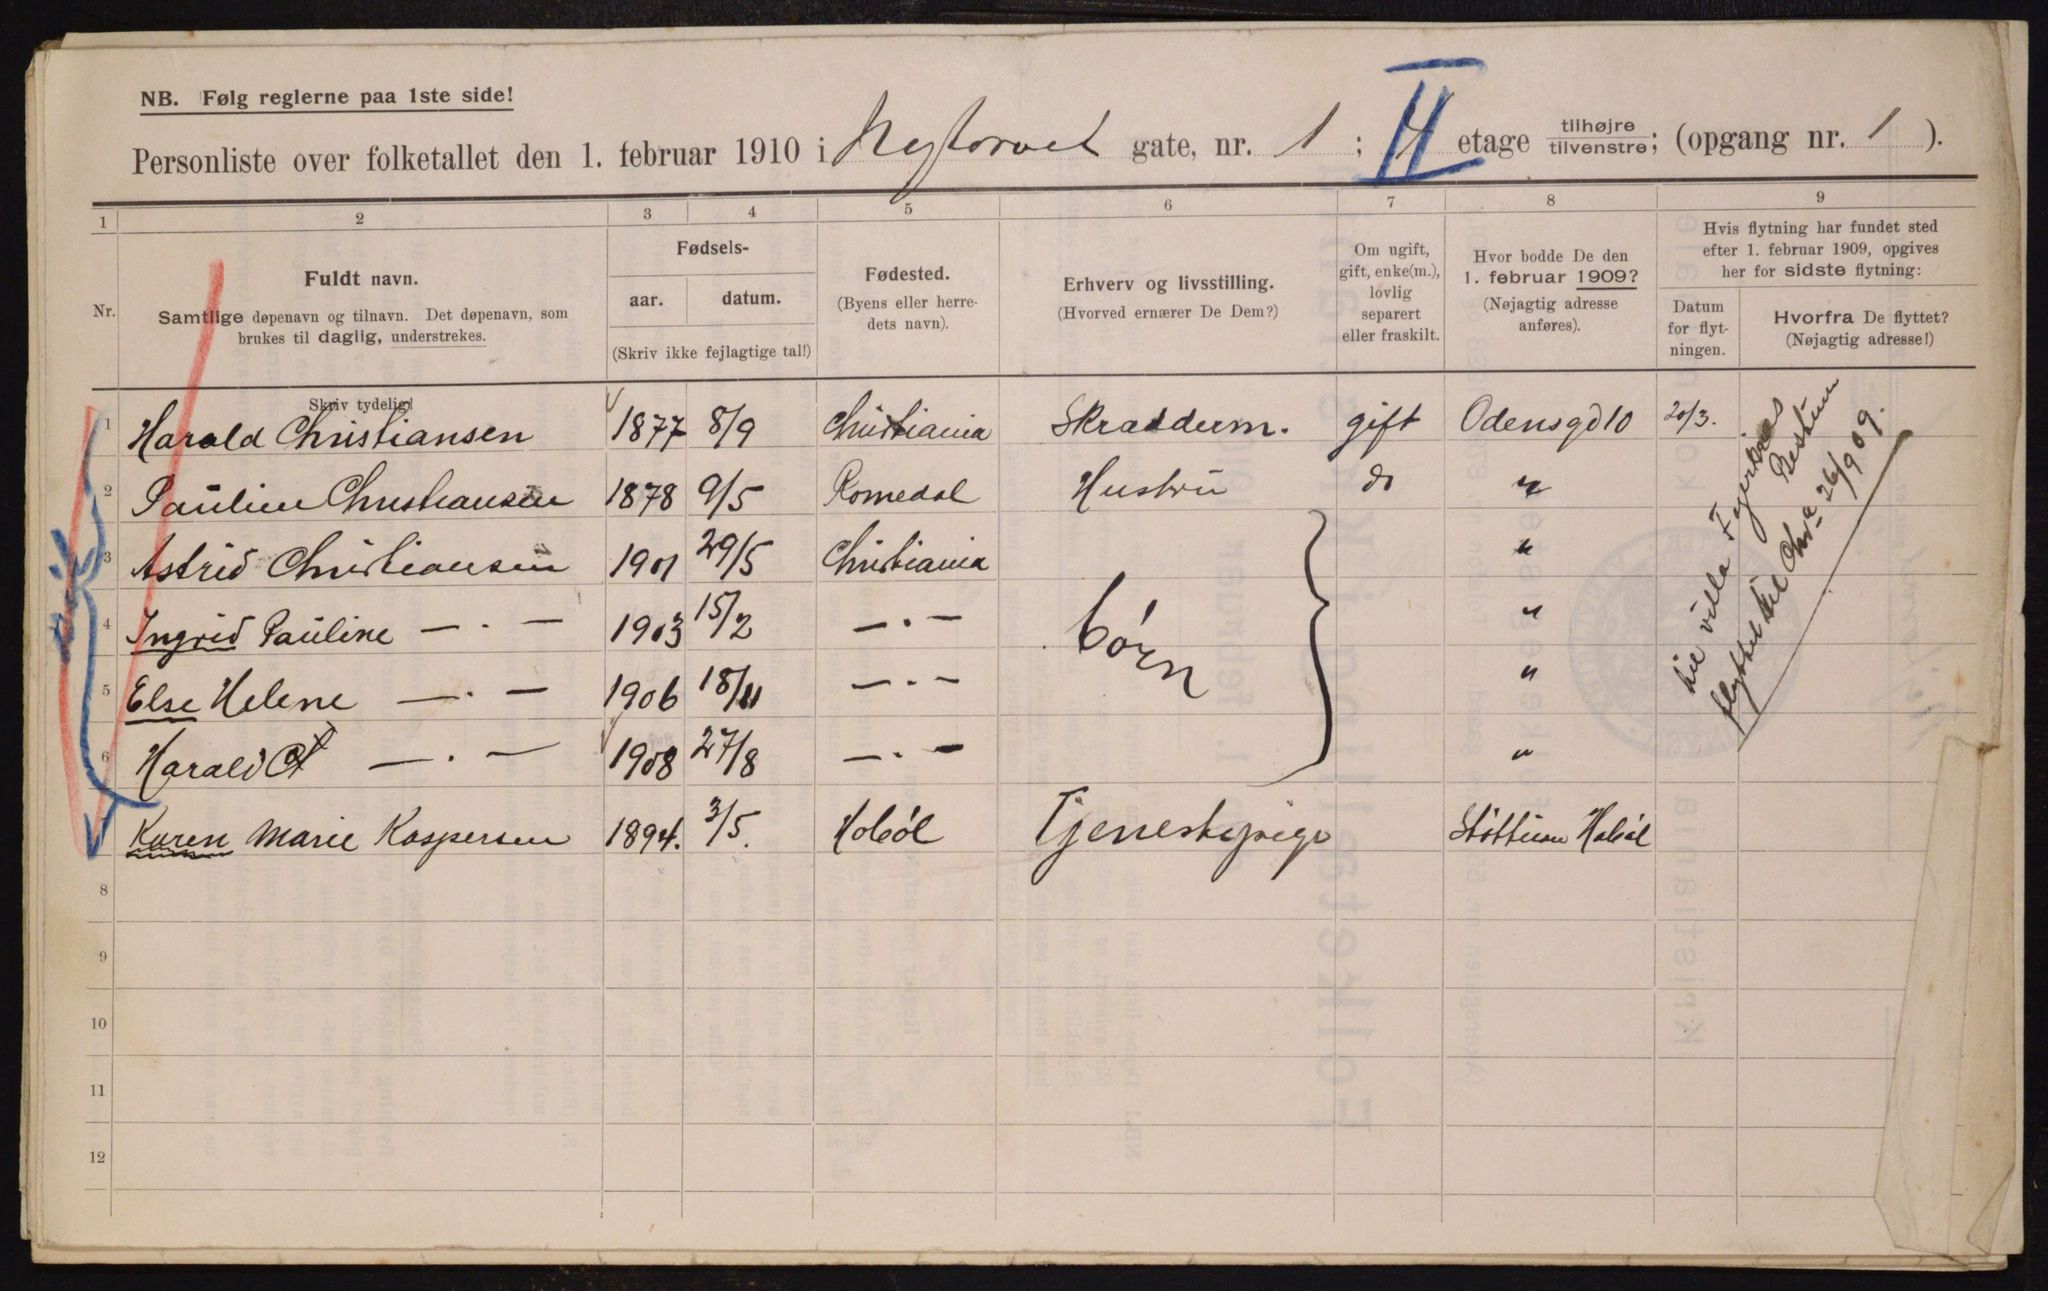 NB. Følg reglerne paa 1ste side!
Personliste over folketallet den 1. februar 1910 i Nytorvet gate, nr. 1; 4 II etage tilhøjre tilvenstre; (opgang nr. 1).
1 2 3 4 5 6 7 8 9
Nr.
Fuldt navn.
Samtlige døpenavn og tilnavn. Det døpenavn, som
brukes til daglig, understrekes.
Fødsels-
aar. datum.
(Skriv ikke fejlagtige tal!)
Fødested.
(Byens eller herre-
dets navn).
Erhverv og livsstilling.
(Hvorved ernærer De Dem?)
Om ugift,
gift, enke(m.),
lovlig
separert
eller fraskilt.
Hvor bodde De den
1. februar 1909?
(Nøjagtig adresse
anføres).
Hvis flytning har fundet sted
efter 1. februar 1909, opgives
her for sidste flytning:
Datum
for flyt-
ningen.
Hvorfra De flyttet?
(Nøjagtig adresse!)
Skriv tydelig!
1 Harald Christiansen 1877 8/9 Christiania Skrædderm. gift Odensgd 10 20/3.
2 Pauline Christiansen 1878 9/5 Romedal Hustru do "
3 Astrid Christiansen 1901 29/5 Christiania "
4 Ingrid Pauline — · — 1903 15/2 — · — børn "
5 Else Helene — · — 1906 18/11 — · — "
6 Harald — · — 1908 27/8 — · — "
Karen Marie Kaspersen 1894. 3/5. Hobøl Tjenestepige Hobøl
til villa Bestum
flyttet til Chra 26/ 1909.
8
9
10
11
12